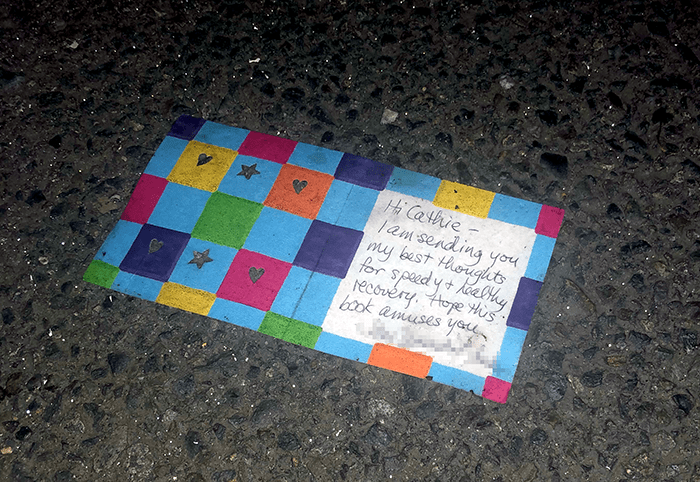 Hi Cathie –
I am sending you
my best thoughts
for speedy + healthy
recovery. Hope this
book amuses you